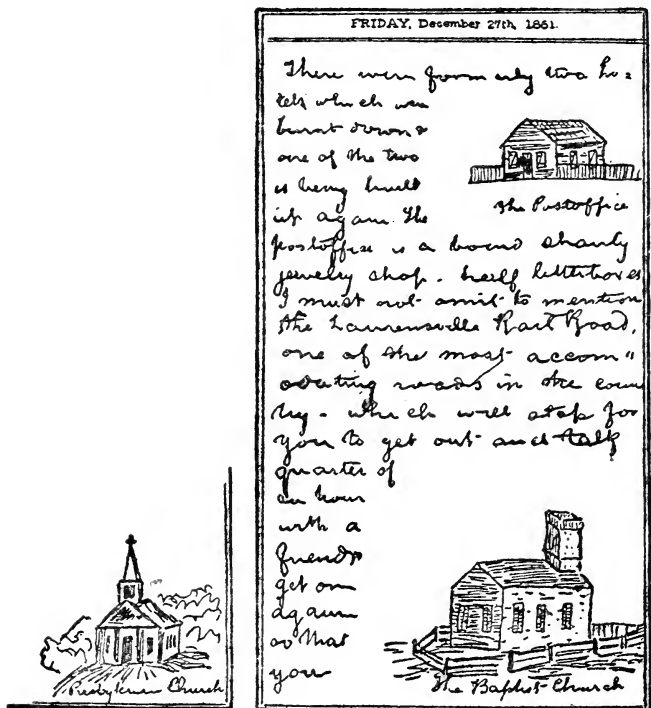 FRIDAY, December 27th, 1861.
There were formerly two ho=
tels which were
burnt down &
one of the two
is being built
up again. The
The Postoffice
postoffice is a board shanty
jewelry shop. half letterboxes
I must not omit to mention
the Laurensville Rail Road,
one of the most accom"
odating roads in the coun
try - which will stop for
you to get out and talk
quarter of
an hour
with a
friend &
get on
again
so that
you
The Baptist Church
Presbyterian Church